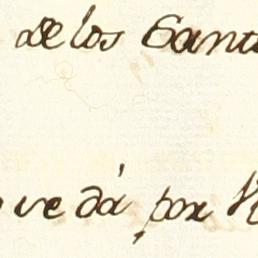 de los Sant
ve dá por